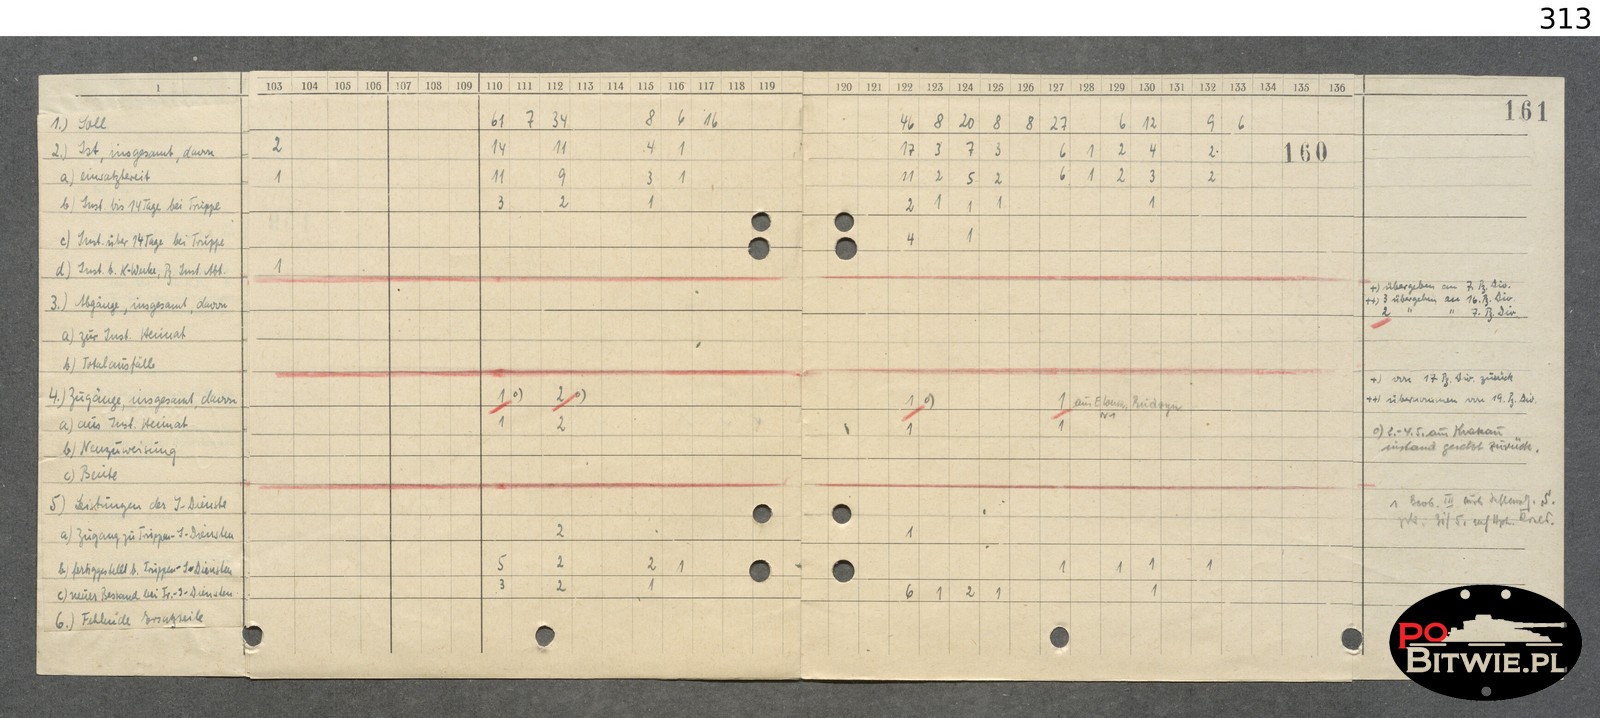 313
1 103 104 105 106 107 108 109 110 111 112 113 114 115 116 117 118 119 120 121 122 123 124 125 126 127 128 129 130 131 132 133 134 135 136
161
1.) Soll 61 7 34 8 6 16 46 8 20 8 8 27 6 12 9 6
2.) Ist, insgesamt, davon 2 14 11 4 1 17 3 7 3 6 1 2 4 2
160
a) einsatzbereit 1 11 9 3 1 11 2 5 2 6 1 2 3 2
b) Inst. bis 14 Tage bei Truppe 3 2 1 2 1 1 1 1
c) Inst. über 14 Tage bei Truppe 4 1
d) Inst. b. K-Werke, Pz. Inst. Abt. 1
+) übergeben an 7. Pz. Div.
3.) Abgänge, insgesamt, davon
++) 3 übergeben an 16. Pz. Div.
2 " " 7. Pz. Div.
a) zur Inst. Heimat
b) Totalausfälle
+) von 17 Pz. Div. zurück
4.) Zugänge, insgesamt, davon 1 o) 2 o) 1 o) 1 aus
++) übernommen von 19. Pz. Div.
a) aus Inst. Heimat 1 2 1 1
o) 2.-4.5. aus Krakau
instand gesetzt zurück.
b) Neuzuweisung
c) Beute
5) Leistungen der I-Dienste
a) Zugang zu Truppen-I-Diensten 2 1
b) fertiggestellt b. Truppen-I-Diensten 5 2 2 1 1 1 1 1
c) neuer Bestand bei Tr.-I-Diensten 3 2 1 6 1 2 1 1
6.) Fehlende Ersatzteile
PO
BITWIE.PL